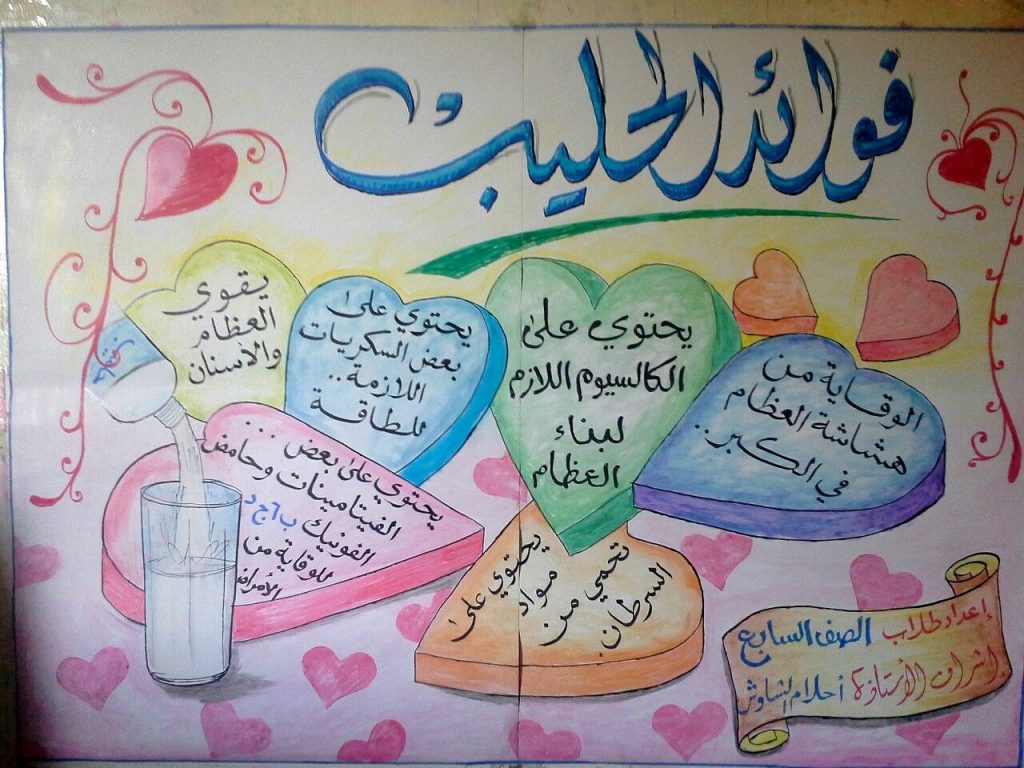 فوائد الحليب
يقوي
العظام
والأسنان
يحتوي على
بعض السكريات
اللازمة..
للطاقة
يحتوي على
الكالسيوم اللازم
لبناء
العظام
الوقاية من
هشاشة العظام
في الكبر..
يحتوي على بعض...
الفيتامينات وحامض
الفونيك ب٦ ج د
للوقاية من
الأمراض
يحتوي على
مواد
تحمي من
السرطان
إعداد طلاب الصف السابع
إشراف الأستاذة أحلام الشاوش